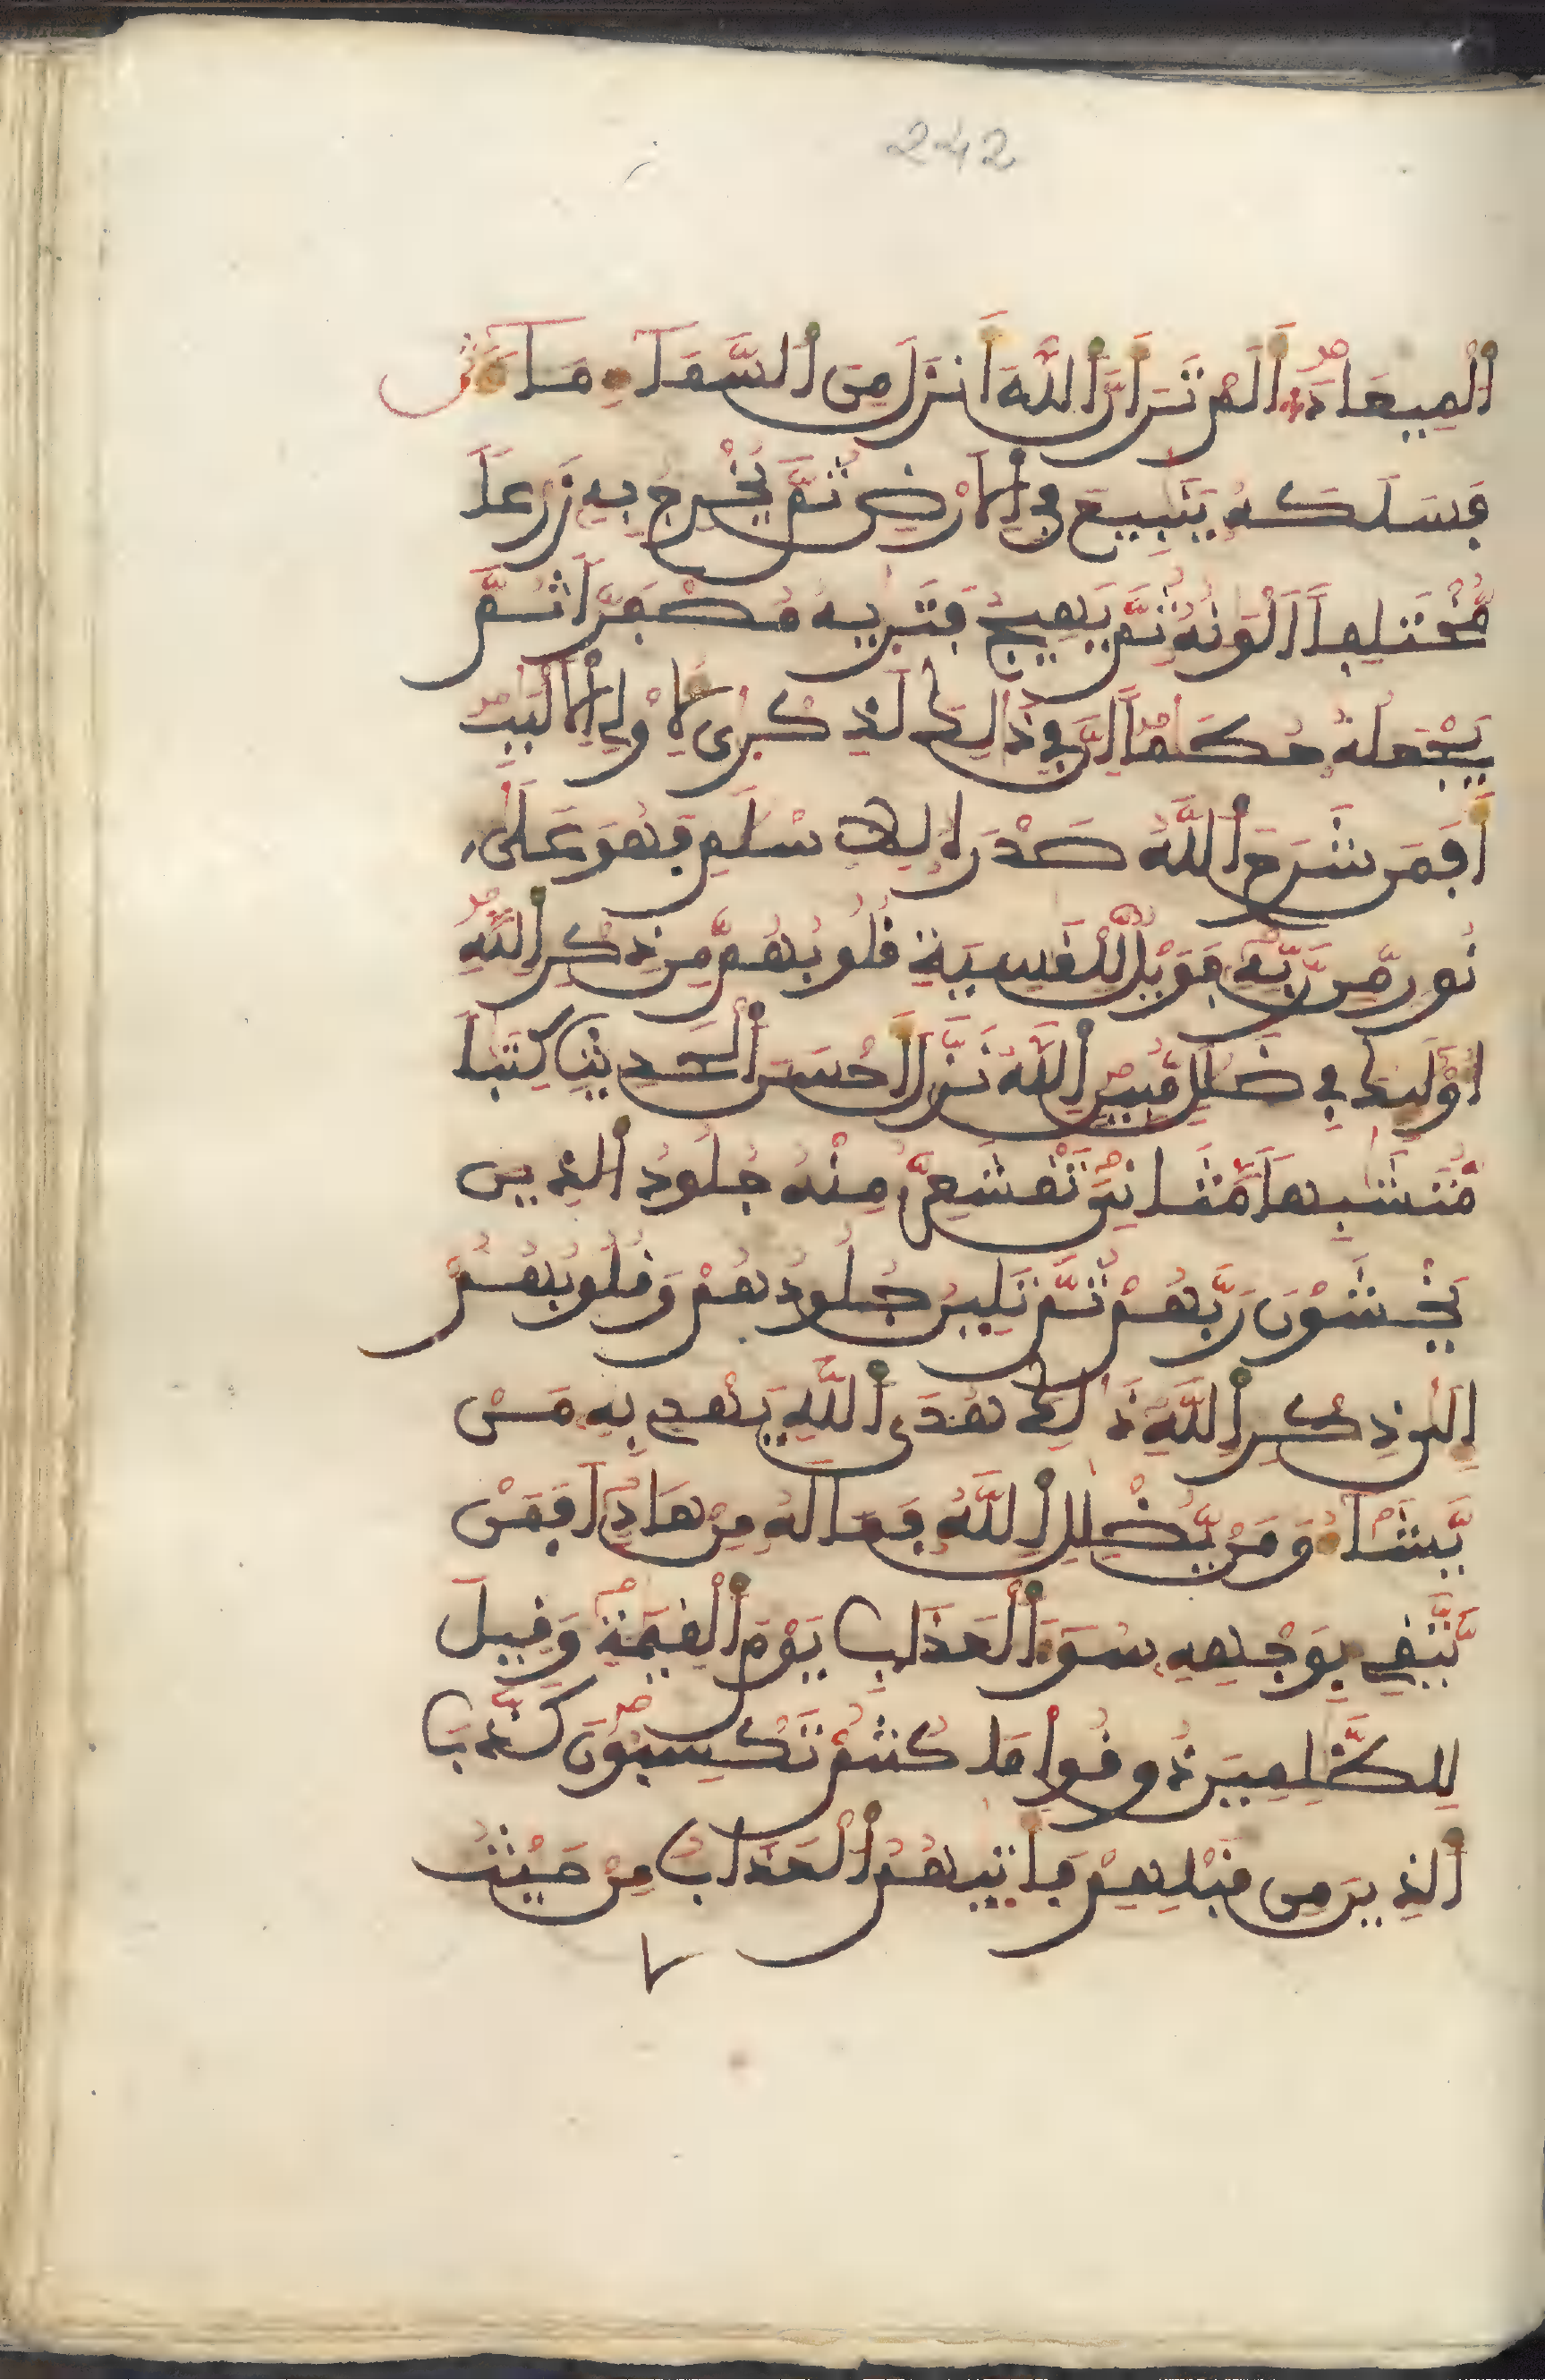 242
اَ۬لْمِيعَادَ اَلَمْ تَرَ أَنَّ اَ۬للَّهَ أَنزَلَ مِنَ اَ۬لسَّمَآءِ مَآءٗ
فَسَلَكَهُۥ يَنَٰبِيعَ فِے اِ۬لَارْضِ ثُمَّ يُخْرِجُ بِهِۦ زَرْعاٗ
مُّخْتَلِفاً اَلْوَٰنُهُۥ ثُمَّ يَهِيجُ فَتَر۪يٰهُ مُصْفَرّاٗ ثُمَّ
يَجْعَلُهُۥ حُطَٰماً اِنَّ فِے ذَٰلِكَ لَذِكْر۪يٰ لِأُوْلِے اِ۬لَالْبَٰبِ
أَفَمَن شَرَحَ اَ۬للَّهُ صَدْرَهُۥ لِلِاسْلَٰمِ فَهُوَ عَلَيٰ
نُورٖ مِّن رَّبِّهِۦ فَوَيْلٞ لِّلْقَٰسِيَةِ قُلُوبُهُم مِّن ذِكْرِ اِ۬للَّهِ
أُوْلَٰٓئِكَ فِے ضَلَٰلٖ مُّبِينٍ اِ۬للَّهُ نَزَّلَ أَحْسَنَ اَ۬لْحَدِيثِ كِتَٰباٗ
مُّتَشَٰبِهاٗ مَّثَانِيَ تَقْشَعِرُّ مِنْهُ جُلُودُ اُ۬لذِينَ
يَخْشَوْنَ رَبَّهُمْ ثُمَّ تَلِينُ جُلُودُهُمْ وَقُلُوبُهُمُۥٓ
إِلَيٰ ذِكْرِ اِ۬للَّهِ ذَٰلِكَ هُدَي اَ۬للَّهِ يَهْدِے بِهِۦ مَنْ
يَّشَآءُ وَمَنْ يُّضْلِلِ اِ۬للَّهُ فَمَا لَهُۥ مِنْ هَادٍ اَفَمَنْ
يَّتَّقِے بِوَجْهِهِۦ سُوٓءَ اَ۬لْعَذَابِ يَوْمَ اَ۬لْقِيَٰمَةِ وَقِيلَ
لِلظَّٰلِمِينَ ذُوقُواْ مَا كُنتُمْ تَكْسِبُونَ كَذَّبَ
اَ۬لذِينَ مِن قَبْلِهِمْ فَأَت۪يٰهُمُ اُ۬لْعَذَابُ مِنْ حَيْثُ